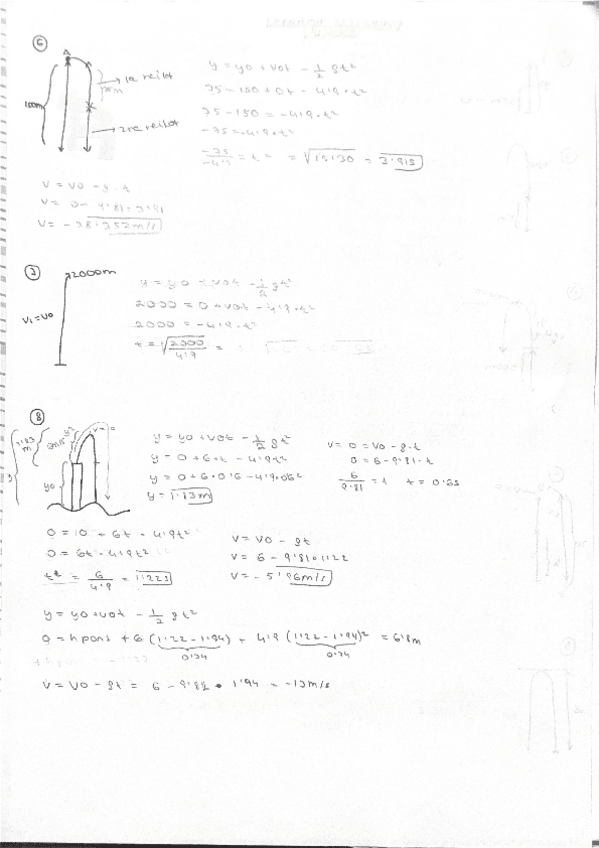 6
A
1er reibot
100m
2nc reibot
y = y0 + v0t - 1/2 gt²
75 = 150 + 0t - 4'9·t²
75 - 150 = -4'9·t²
-75 = -4'9·t²
-75/-4'9 = t² = √15'30 = 3'91s
V = V0 - g·t
V = 0 - 9'81·3'91
V = -38'357m/s
7
2000m
V1 = V0
y = y0 + v0t - 1/2 gt²
2000 = 0 + v0t - 4'9·t²
2000 = -4'9·t²
t = √2000/4'9 =
8
y0
y = y0 + v0t - 1/2 gt²
y = 0 + 6·t - 4'9t²
y = 0 + 6·0'6 - 4'9·0'6²
y = 1'83m
V = 0 = V0 - g·t
0 = 6 - 9'81·t
6/9'81 = t t = 0'6s
0 = 0 + 6t - 4'9t²
0 = 6t - 4'9t²
t = 6/4'9 = 1'22s
V = V0 - gt
V = 6 - 9'81·1'22
V = -5'96m/s
y = y0 + v0t - 1/2 gt²
0 = h pont + 6 (1'22 - 1'94) + 4'9 (1'22 - 1'94)² = 6'8m
0'74 0'74
V = V0 - gt = 6 - 9'82 · 1'94 = -13m/s